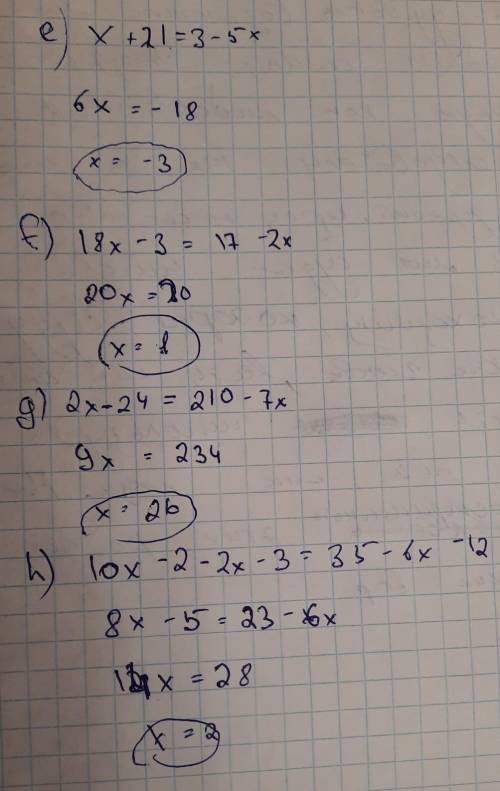 e) x + 21 = 3 - 5x
6x = - 18
x = - 3
f) 18x - 3 = 17 - 2x
20x = 20
x = 1
g) 2x - 24 = 210 - 7x
9x = 234
x = 26
h) 10x - 2 - 2x - 3 = 35 - 6x - 12
8x - 5 = 23 - 6x
14x = 28
x = 2